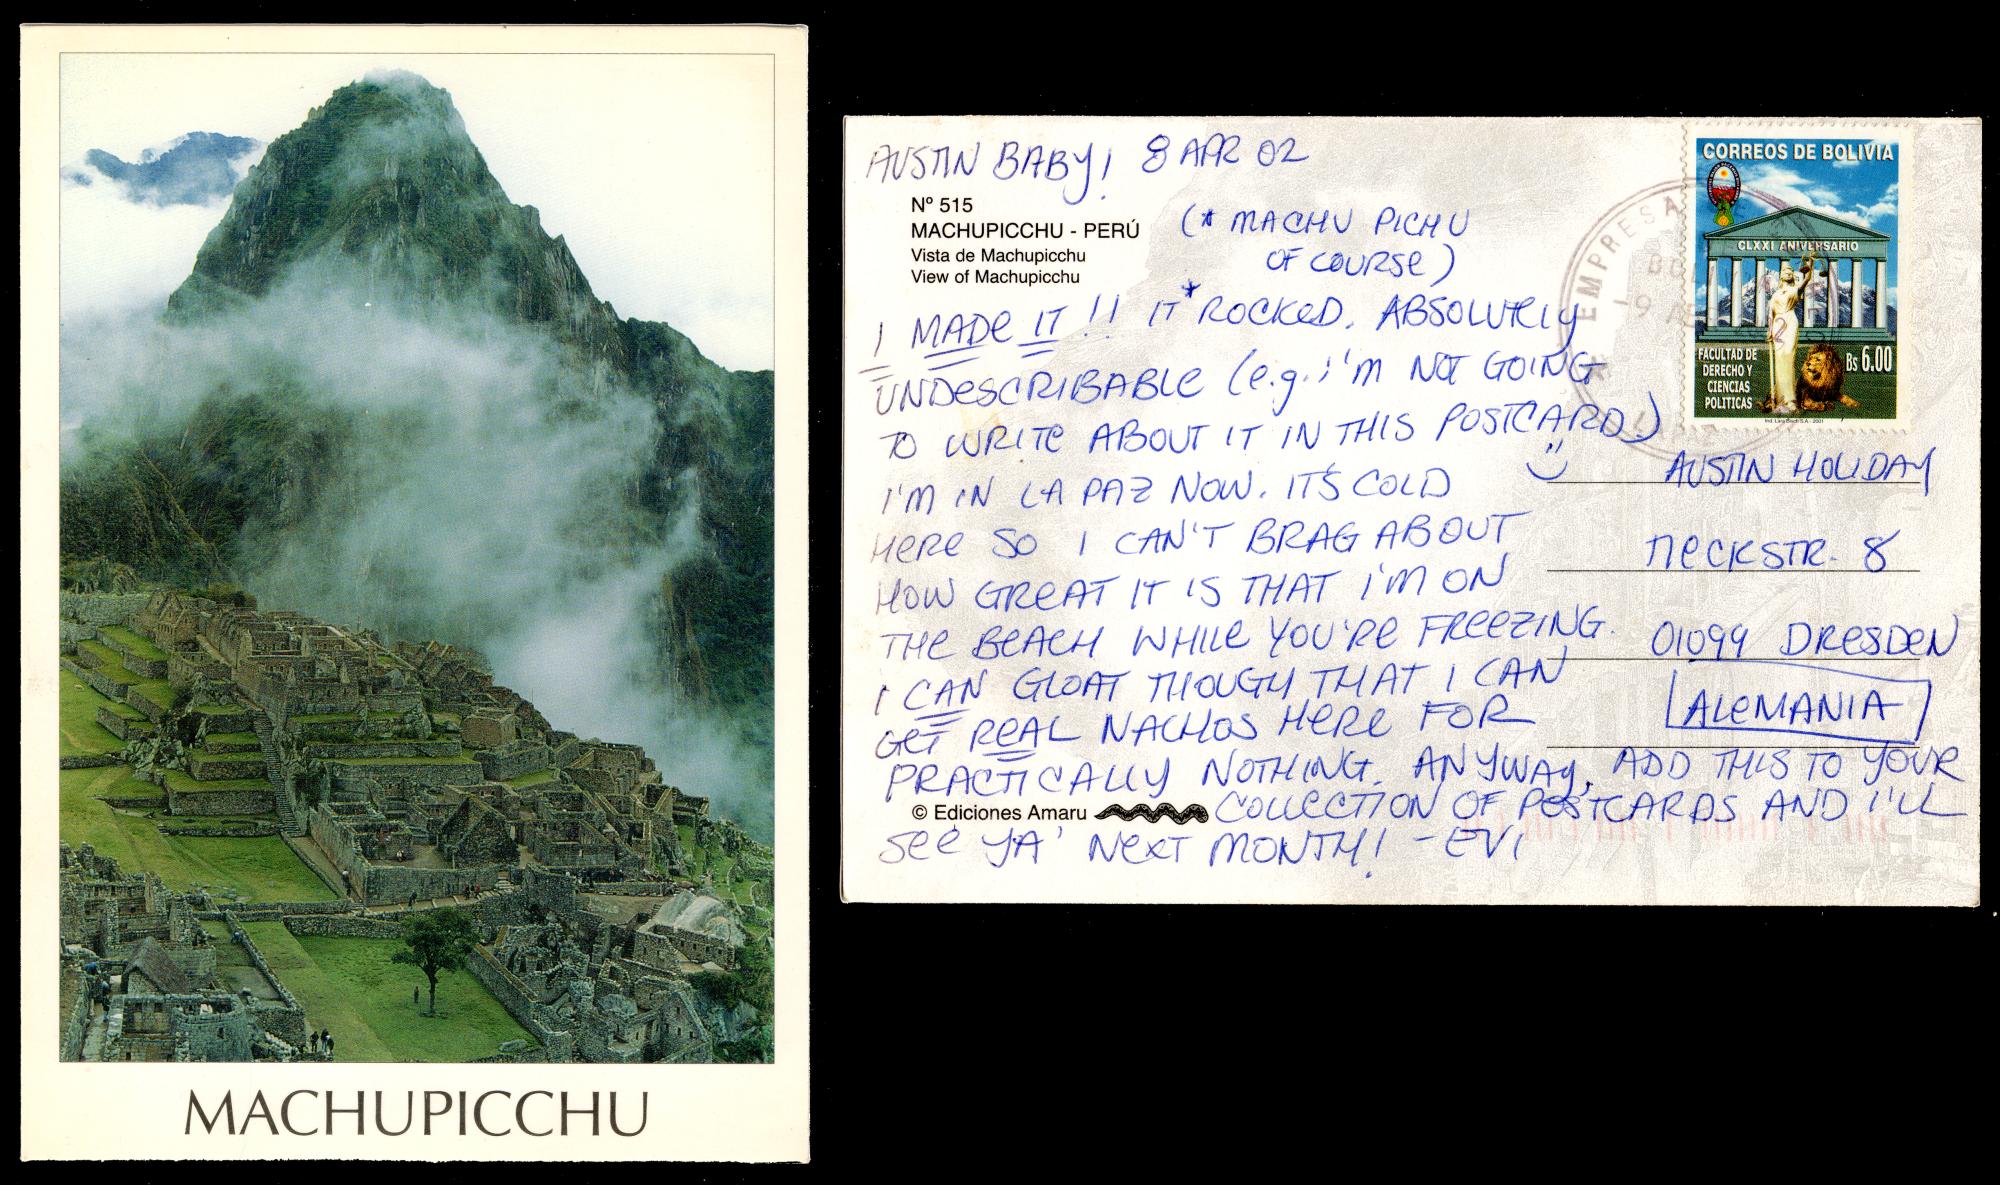 MACHUPICCHU
AUSTIN BABY! 8 APR 02
Nº 515
MACHUPICCHU - PERÚ
Vista de Machupicchu
View of Machupicchu
(* MACHU PICHU
OF COURSE)
I MADE IT!! IT* ROCKED. ABSOLUTELY
UNDESCRIBABLE (e.g. I'M NOT GOING
TO WRITE ABOUT IT IN THIS POSTCARD)
I'M IN LA PAZ NOW. IT'S COLD
HERE SO I CAN'T BRAG ABOUT
HOW GREAT IT IS THAT I'M ON
THE BEACH WHILE YOU'RE FREEZING.
I CAN GLOAT THOUGH THAT I CAN
GET REAL NACHOS HERE FOR
PRACTICALLY NOTHING. ANYWAY, ADD THIS TO YOUR
© Ediciones Amaru
COLLECTION OF POSTCARDS AND I'LL
SEE YA' NEXT MONTH! - EVI
CORREOS DE BOLIVIA
CLXXI ANIVERSARIO
FACULTAD DE
DERECHO Y
CIENCIAS
POLITICAS
Bs 6.00
EMPRESA
AUSTIN HOLIDAY
NECKSTR. 8
01099 DRESDEN
ALEMANIA